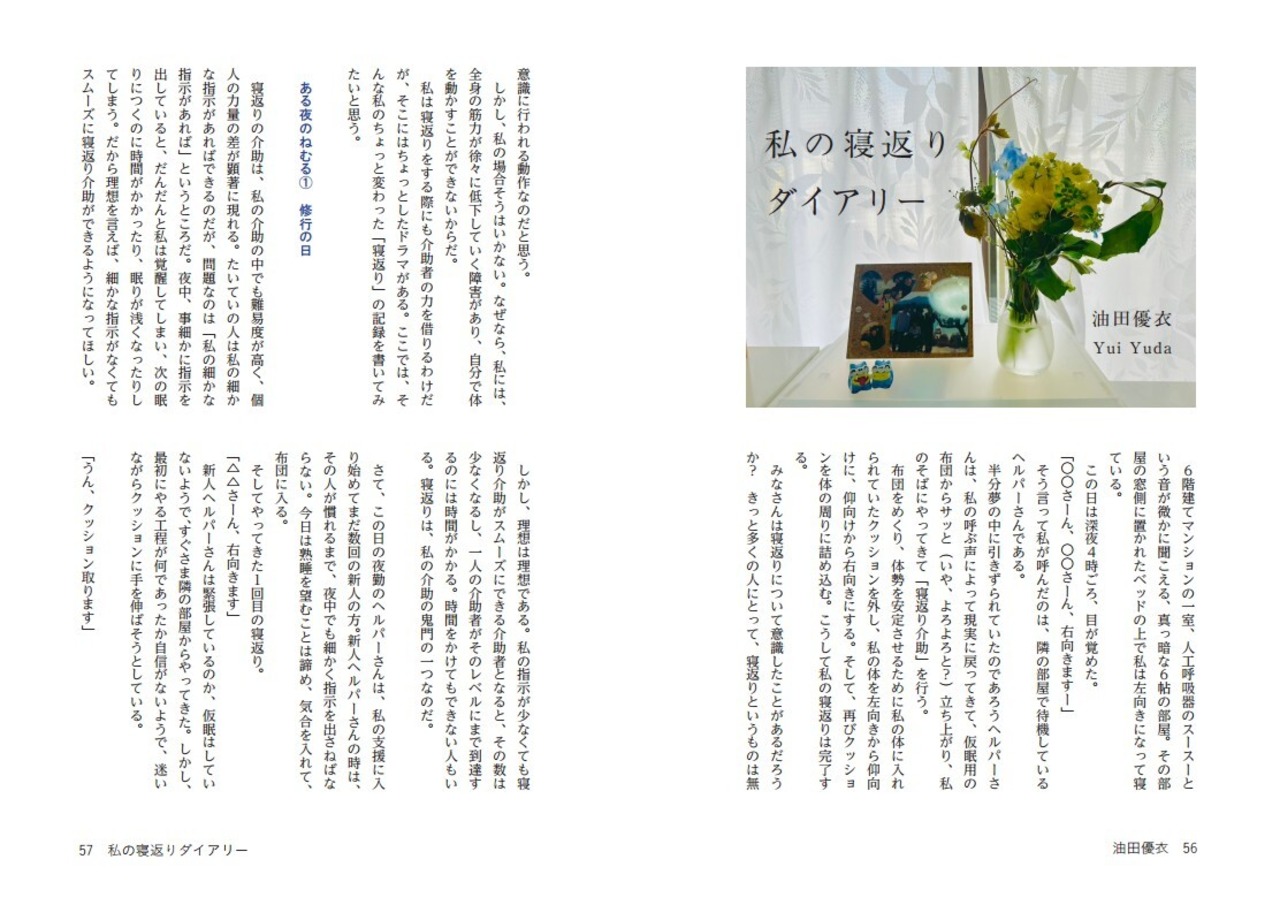 私の寝返り
ダイアリー
油田優衣
Yui Yuda
　６階建てマンションの一室、人工呼吸器のスースーと
いう音が微かに聞こえる、真っ暗な６帖の部屋。その部
屋の窓側に置かれたベッドの上で私は左向きになって寝
ている。
　この日は深夜４時ごろ、目が覚めた。
「〇〇さーん、〇〇さーん、右向きますー」
　そう言って私が呼んだのは、隣の部屋で待機している
ヘルパーさんである。
　半分夢の中に引きずられていたのであろうヘルパーさ
んは、私の呼ぶ声によって現実に戻ってきて、仮眠用の
布団からサッと（いや、よろよろと？）立ち上がり、私
のそばにやってきて「寝返り介助」を行う。
　布団をめくり、体勢を安定させるために私の体に入れ
られていたクッションを外し、私の体を左向きから仰向
けに、仰向けから右向きにする。そして、再びクッショ
ンを体の周りに詰め込む。こうして私の寝返りは完了す
る。
　みなさんは寝返りについて意識したことがあるだろう
か？　きっと多くの人にとって、寝返りというものは無
油田優衣　56
意識に行われる動作なのだと思う。
　しかし、私の場合そうはいかない。なぜなら、私には、
全身の筋力が徐々に低下していく障害があり、自分で体
を動かすことができないからだ。
　私は寝返りをする際にも介助者の力を借りるわけだ
が、そこにはちょっとしたドラマがある。ここでは、そ
んな私のちょっと変わった「寝返り」の記録を書いてみ
たいと思う。
ある夜のねむる①　修行の日
　寝返りの介助は、私の介助の中でも難易度が高く、個
人の力量の差が顕著に現れる。たいていの人は私の細か
な指示があればできるのだが、問題なのは「私の細かな
指示があれば」というところだ。夜中、事細かに指示を
出していると、だんだんと私は覚醒してしまい、次の眠
りにつくのに時間がかかったり、眠りが浅くなったりし
てしまう。だから理想を言えば、細かな指示がなくても
スムーズに寝返り介助ができるようになってほしい。
　しかし、理想は理想である。私の指示が少なくても寝
返り介助がスムーズにできる介助者となると、その数は
少なくなるし、一人の介助者がそのレベルにまで到達す
るのには時間がかかる。時間をかけてもできない人もい
る。寝返りは、私の介助の鬼門の一つなのだ。
　さて、この日の夜勤のヘルパーさんは、私の支援に入
り始めてまだ数回の新人の方。新人ヘルパーさんの時は、
その人が慣れるまで、夜中でも細かく指示を出さねばな
らない。今日は熟睡を望むことは諦め、気合を入れて、
布団に入る。
　そしてやってきた１回目の寝返り。
「△△さーん、右向きます」
　新人ヘルパーさんは緊張しているのか、仮眠はしてい
ないようで、すぐさま隣の部屋からやってきた。しかし、
最初にやる工程が何であったか自信がないようで、迷い
ながらクッションに手を伸ばそうとしている。
「うん、クッション取ります」
57　私の寝返りダイアリー